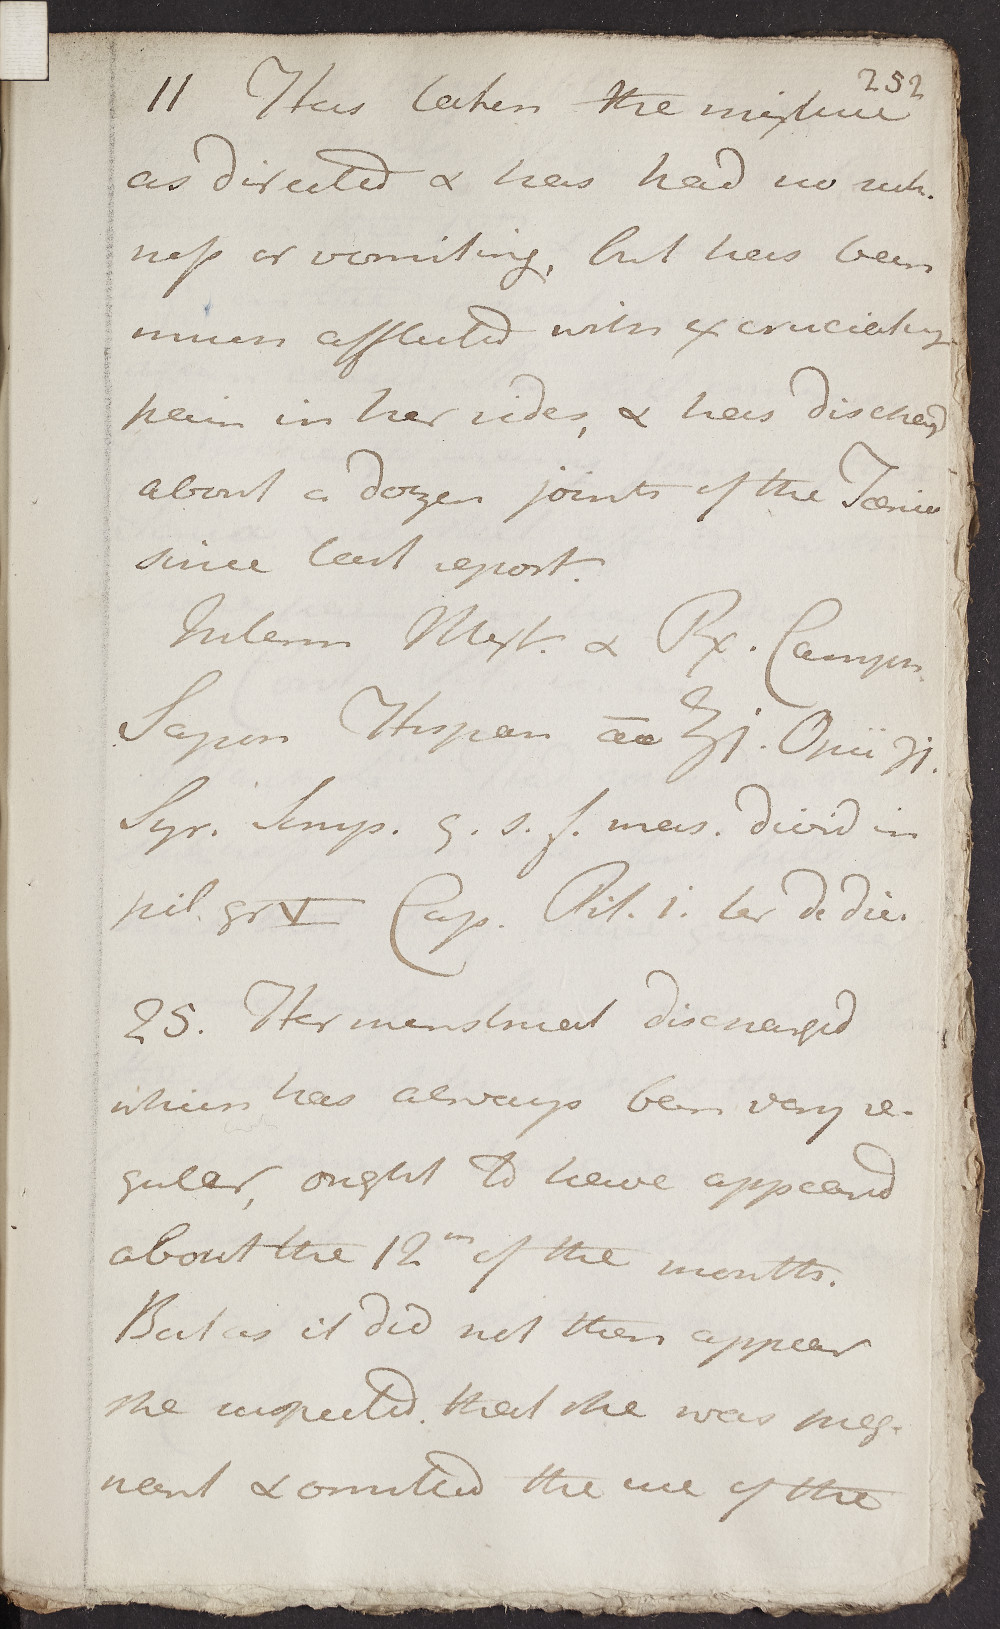 252
11 Has taken the mixture
as directed & has had no sick-
ness or vomiting, but has been
much afflicted with excruciating
pain in her sides, & has discharg'd
about a dozen joints of the Tænia
since last report.
Interm Mixt. & Rx. Camph.
Sapon Hispan āā ʒj. Opii ℈j.
Syr. Simp. q. s. f. mas. divid in
pil. gr V Cap. Pil. i. ter de die.
25. Her menstrual discharge
which has always been very re-
gular, ought to have appeared
about the 12th of the month.
But as it did not then appear
she suspected that she was preg-
nant & omitted the use of the